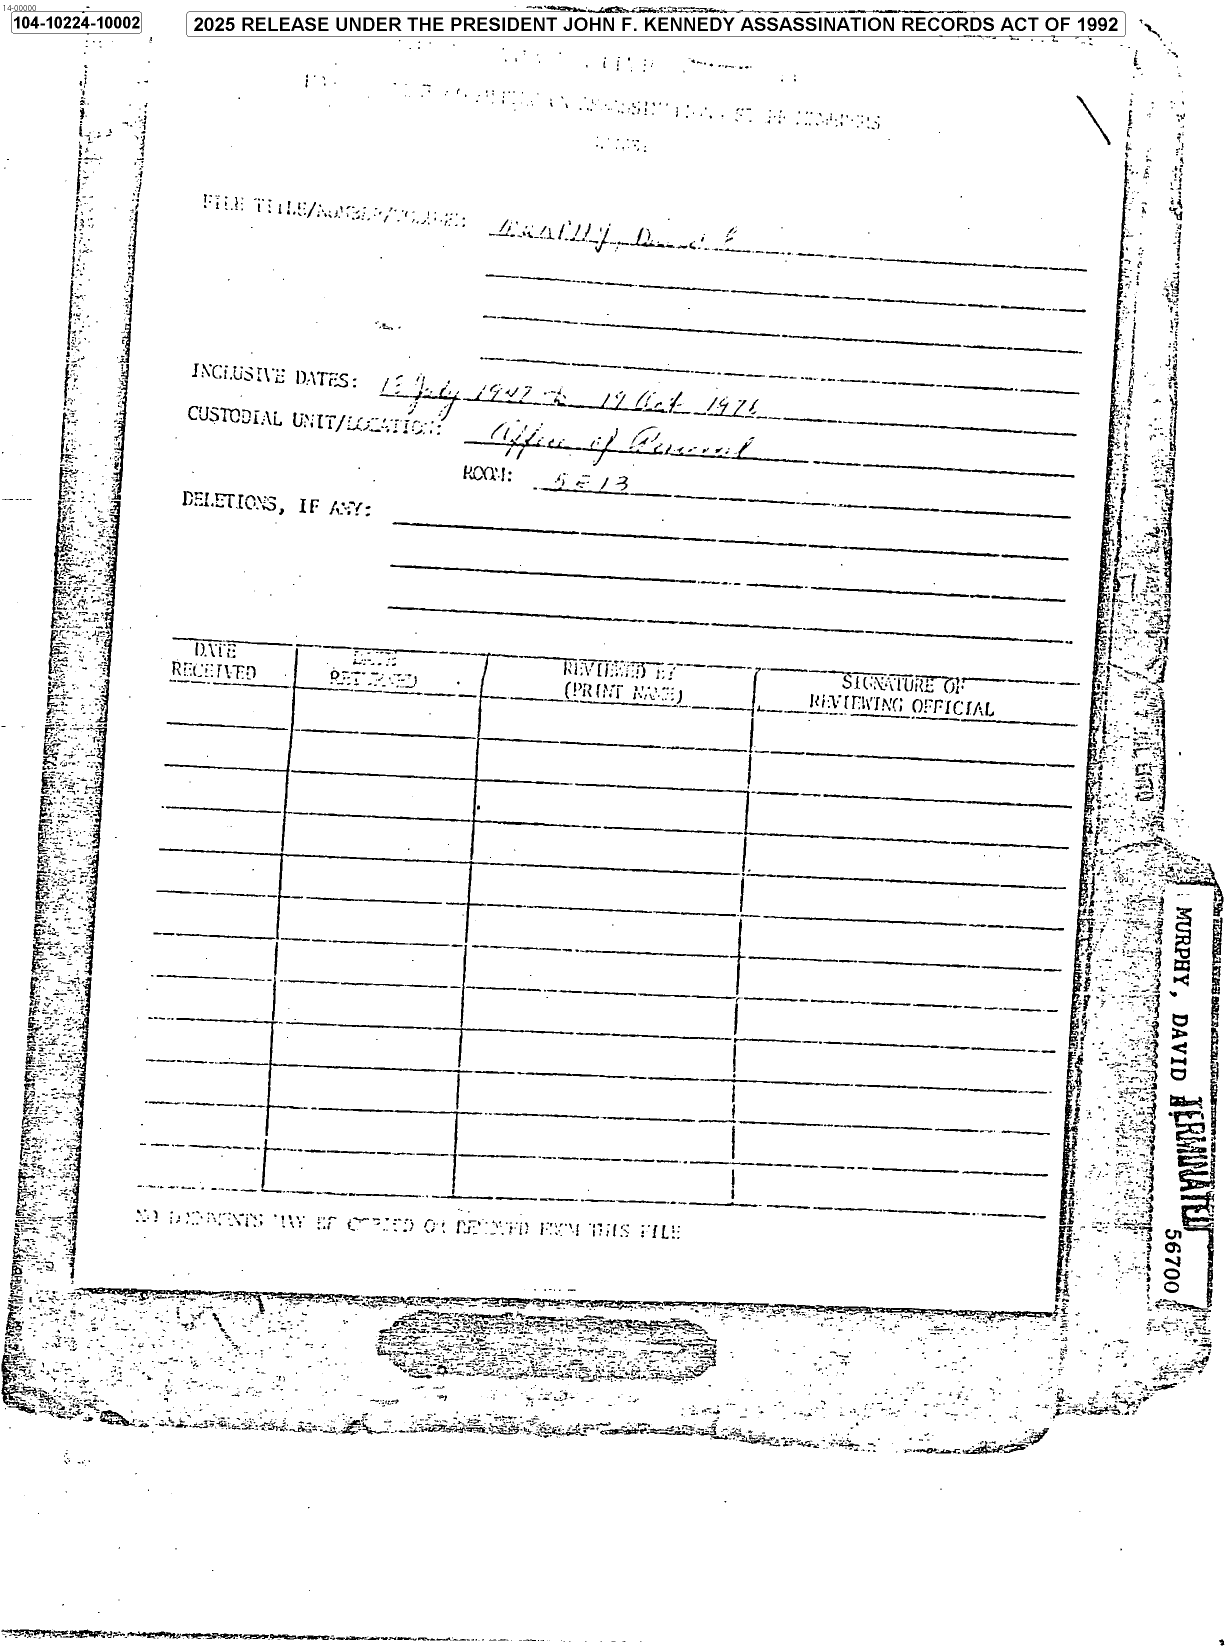 14-00000
104-10224-10002
2025 RELEASE UNDER THE PRESIDENT JOHN F. KENNEDY ASSASSINATION RECORDS ACT OF 1992
FILE TITLE/NUMBER/VOLUME: MURPHY, David E
INCLUSIVE DATES: July 1947 to 19 Oct 1976
CUSTODIAL UNIT/LOCATION: Office of Personnel
ROOM: 5E13
DELETIONS, IF ANY:
DATE RECEIVED
DATE RETURNED
REVIEWED BY (PRINT NAME)
SIGNATURE OF REVIEWING OFFICIAL
NO DOCUMENTS MAY BE COPIED OR REMOVED FROM THIS FILE
MURPHY, DAVID E
TERMINATED
56700